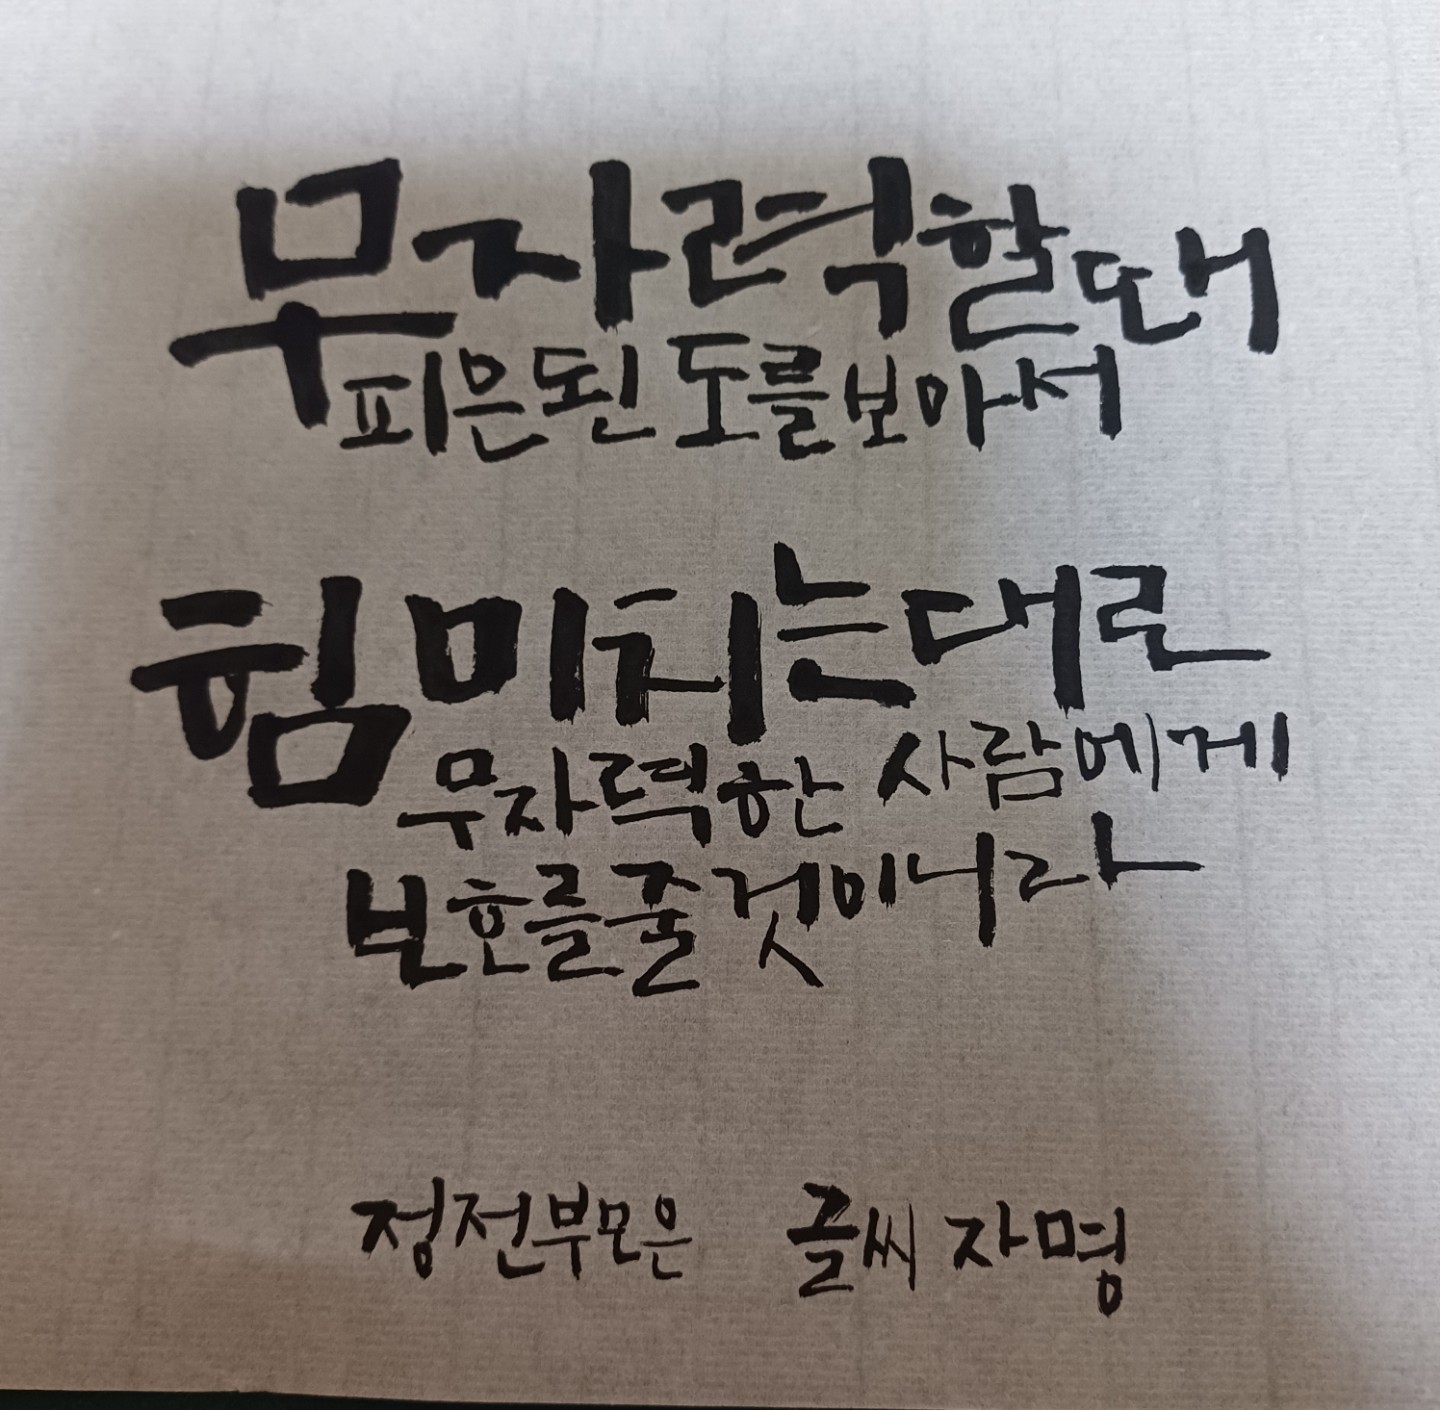 무자력할때
피은된 도를 보아서
힘 미치는대로
무자력한 사람에게
보호를 줄 것이니라
정전부모은 글씨 자명